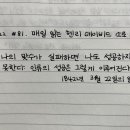 #81. 매일 읽는 헨리 데이비드 소로
나의 맞수가 실패하면 나도 성공하지
못한다. 인류의 성공은 그렇게 이루어진다.
1842년 3월 22일의 일